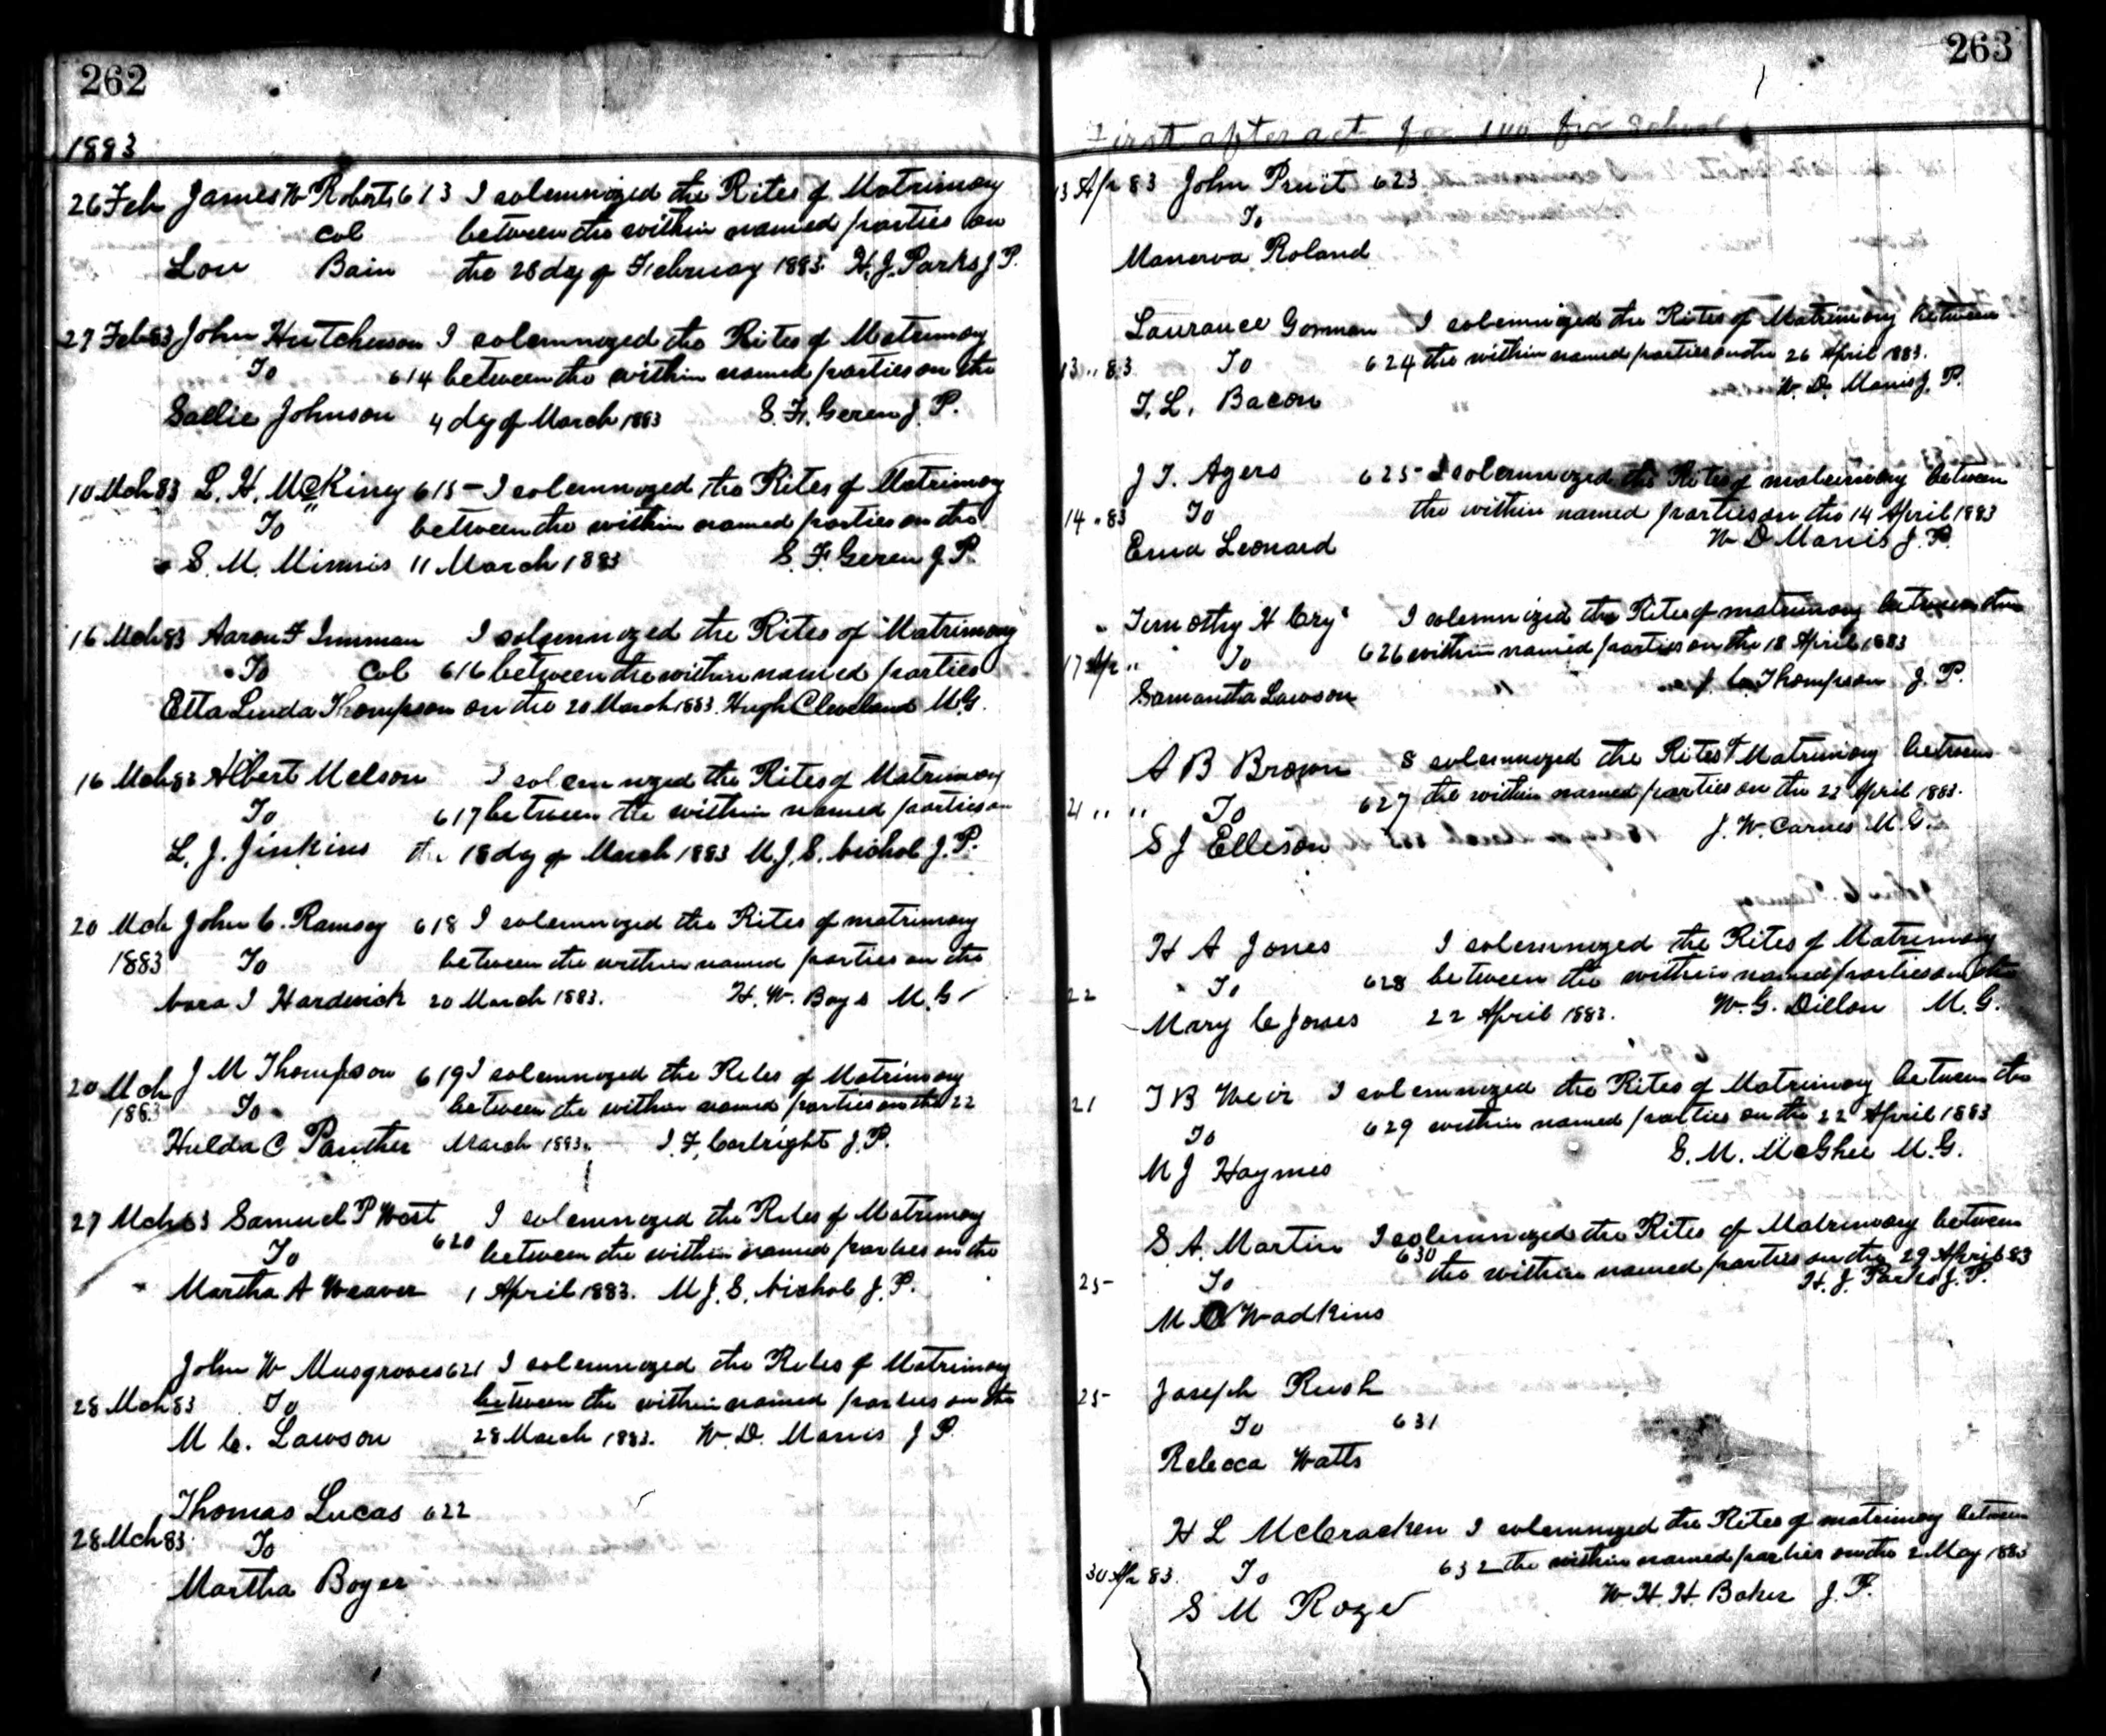 262
1883
26 Feb James W Roberts 613 I solemnized the Rites of Matrimony
Col between the within named parties on
Lou Bain the 28 day of February 1883. H. J. Parks J P.
27 Feb 83 John Hutcherson I solemnized the Rites of Matrimony
To 614 between the within named parties on the
Sallie Johnson 4 dy of March 1883 S. F. Geren J. P.
10 Mch 83 L. H. McKiney 615 - I solemnized the Rites of Matrimony
To between the within named parties on the
S. M. Minnis 11 March 1883 S. F. Geren J. P.
16 Mch 83 Aaron F Inman I solemnized the Rites of Matrimony
To Col 616 between the within named parties
Etta Linda Thompson on the 20 March 1883. Hugh Cleveland M.G.
16 Mch 83 Albert Melson I solemnized the Rites of Matrimony
To 617 between the within named parties on
L. J. Jinkins the 18 day of March 1883 M. J. S. Nichol J. P.
20 Mch John C. Ramsey 618 I solemnized the Rites of matrimony
1883 To between the within named parties on the
Cora I Hardwick 20 March 1883. H. W. Bays M. G.
20 Mch J M Thompson 619 I solemnized the Rites of Matrimony
1883 To between the within named parties on the 22
Hulda C Panther March 1883. J. F. Cartright J. P.
27 Mch 83 Samuel P West I solemnized the Rites of Matrimony
To 620 between the within named parties on the
Martha A Weaver 1 April 1883. M J. S. Nichol J. P.
John W Musgroves 621 I solemnized the Rites of Matrimony
28 Mch 83 To between the within named parties on the
M C. Lawson 28 March 1883. W. D. Manis J P.
Thomas Lucas 622
28 Mch 83 To
Martha Boyer
263
First after act for for School
13 Apr 83 John Pruit 623
To
Manerva Roland
Laurance Gorman I solemnized the Rites of Matrimony between
13 " 83 To 624 the within named parties on the 26 April 1883.
T. L. Bacon W. D. Manis J. P.
J T. Agers 625 - I solemnized the Rites of matrimony between
14 " 83 To the within named parties on the 14 April 1883
Ema Leonard W D Manis J. P.
Timothy H Cry I solemnized the Rites of matrimony between the
17 Apr " To 626 within named parties on the 18 April 1883
Samantha Lawson J C Thompson J. P.
A B Brown I solemnized the Rites of Matrimony between
21 " " To 627 the within named parties on the 22 April 1883.
S J Ellison J. W. Carnes M. G.
H A Jones I solemnized the Rites of Matrimony
22 To 628 between the within named parties on the
Mary C Jones 22 April 1883. W. G. Dillon M. G.
21 T B Weir I solemnized the Rites of Matrimony between the
To 629 within named parties on the 22 April 1883
M J Haymes S. M. McGhee M. G.
S. A. Martin I solemnized the Rites of Matrimony between
25 - To 630 the within named parties on the 29 April 83
M Wadkins H. J. Parks J. P.
25 - Joseph Rush
To 631
Rebecca Watts
H L McCracken I solemnized the Rites of matrimony between
30 Apr 83. To 632 the within named parties on the 2 May 1883
S M Roze W. H. H. Baker J. P.